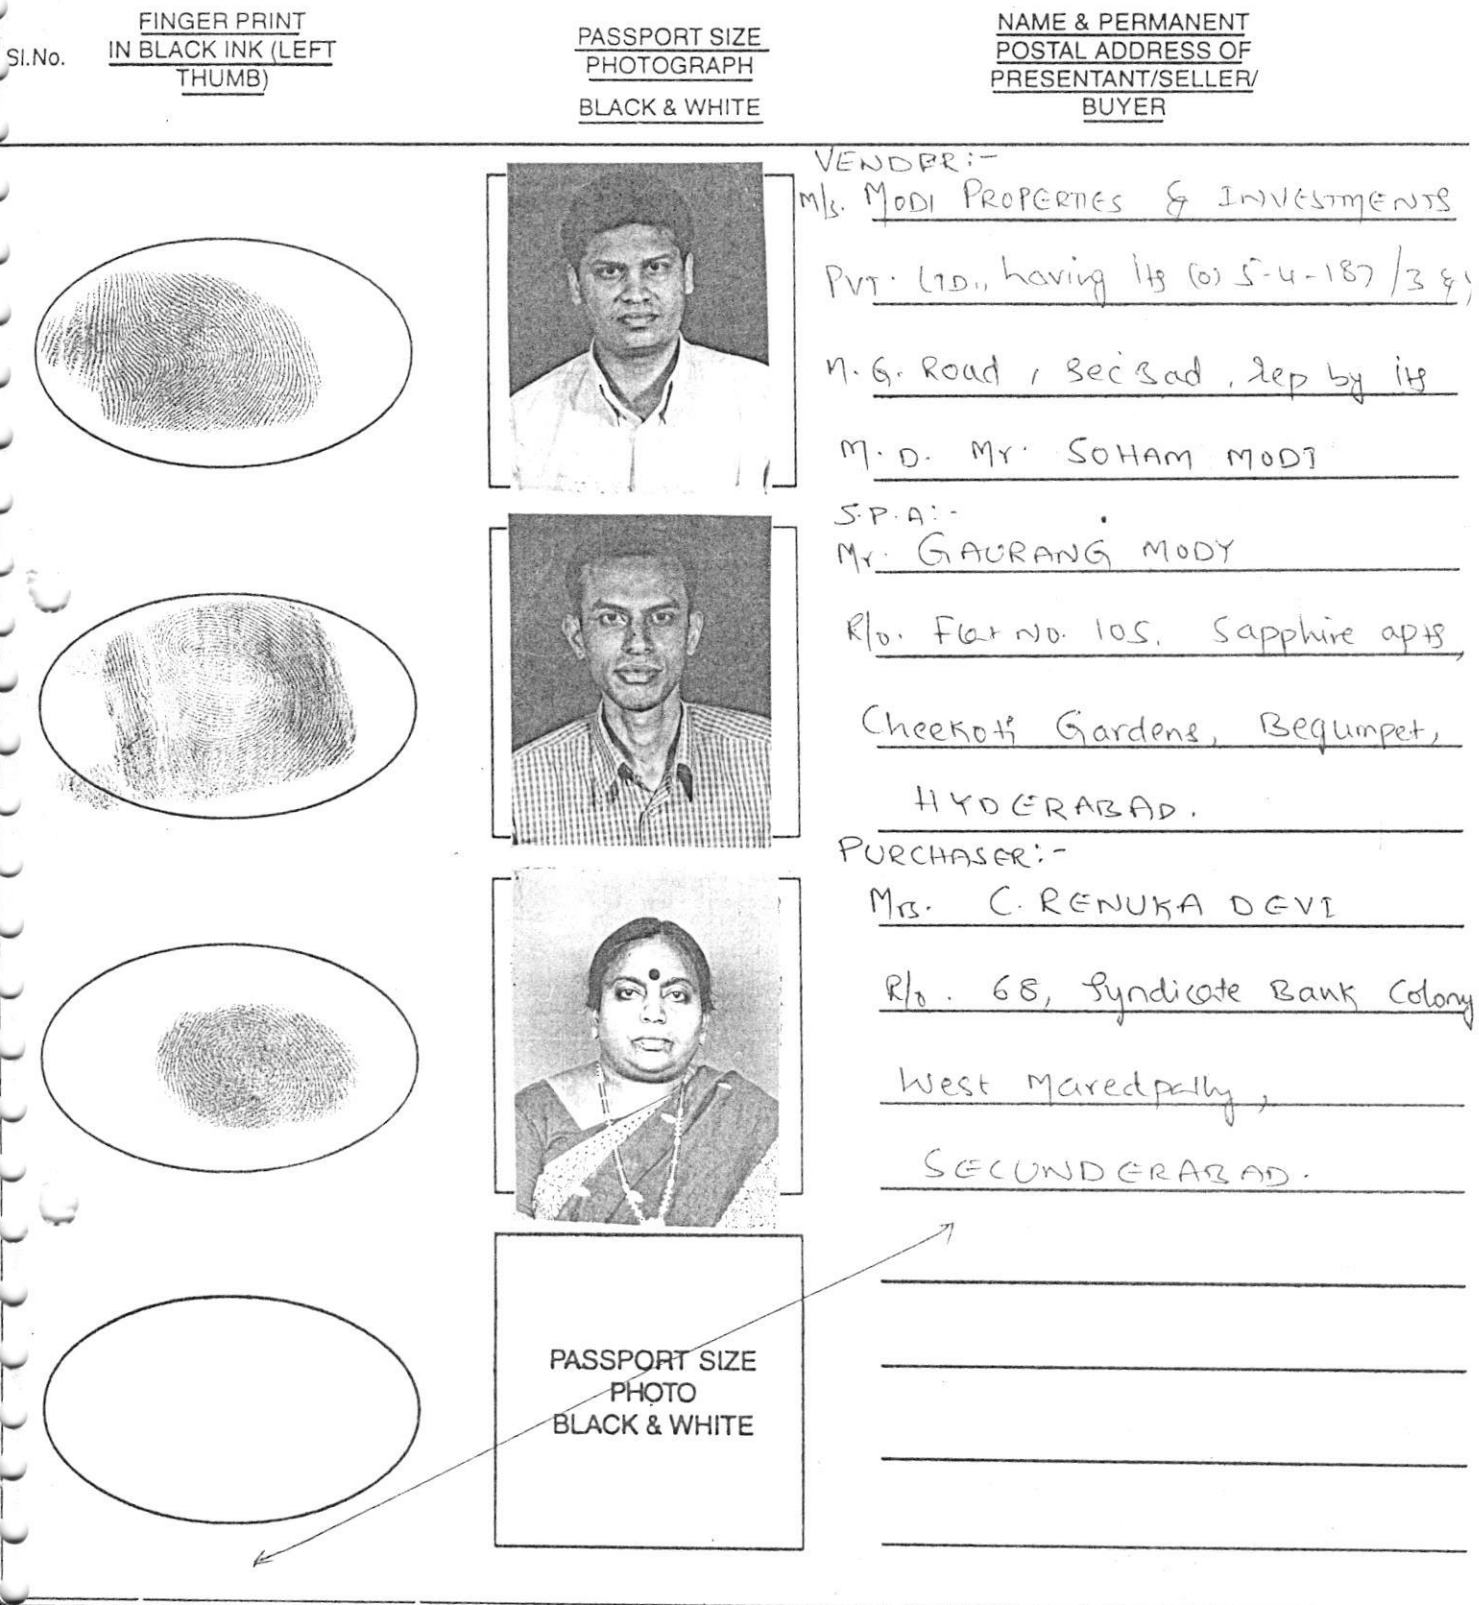 Sl.No.
FINGER PRINT
IN BLACK INK (LEFT
THUMB)
PASSPORT SIZE
PHOTOGRAPH
BLACK & WHITE
NAME & PERMANENT
POSTAL ADDRESS OF
PRESENTANT/SELLER/
BUYER
VENDER:-
M/s. MODI PROPERTIES & INVESTMENTS
PVT. LTD., having its (O) 5-4-187/3 &
M.G. Road, Sec'Bad, rep by its
M.D. Mr. SOHAM MODI
S.P.A:-
Mr. GAURANG MODY
R/o. Flat No. 105, Sapphire apts,
Cheekoti Gardens, Begumpet,
HYDERABAD.
PURCHASER:-
Mrs. C. RENUKA DEVI
R/o. 68, Syndicate Bank Colony
West Maredpally,
SECUNDERABAD.
PASSPORT SIZE
PHOTO
BLACK & WHITE